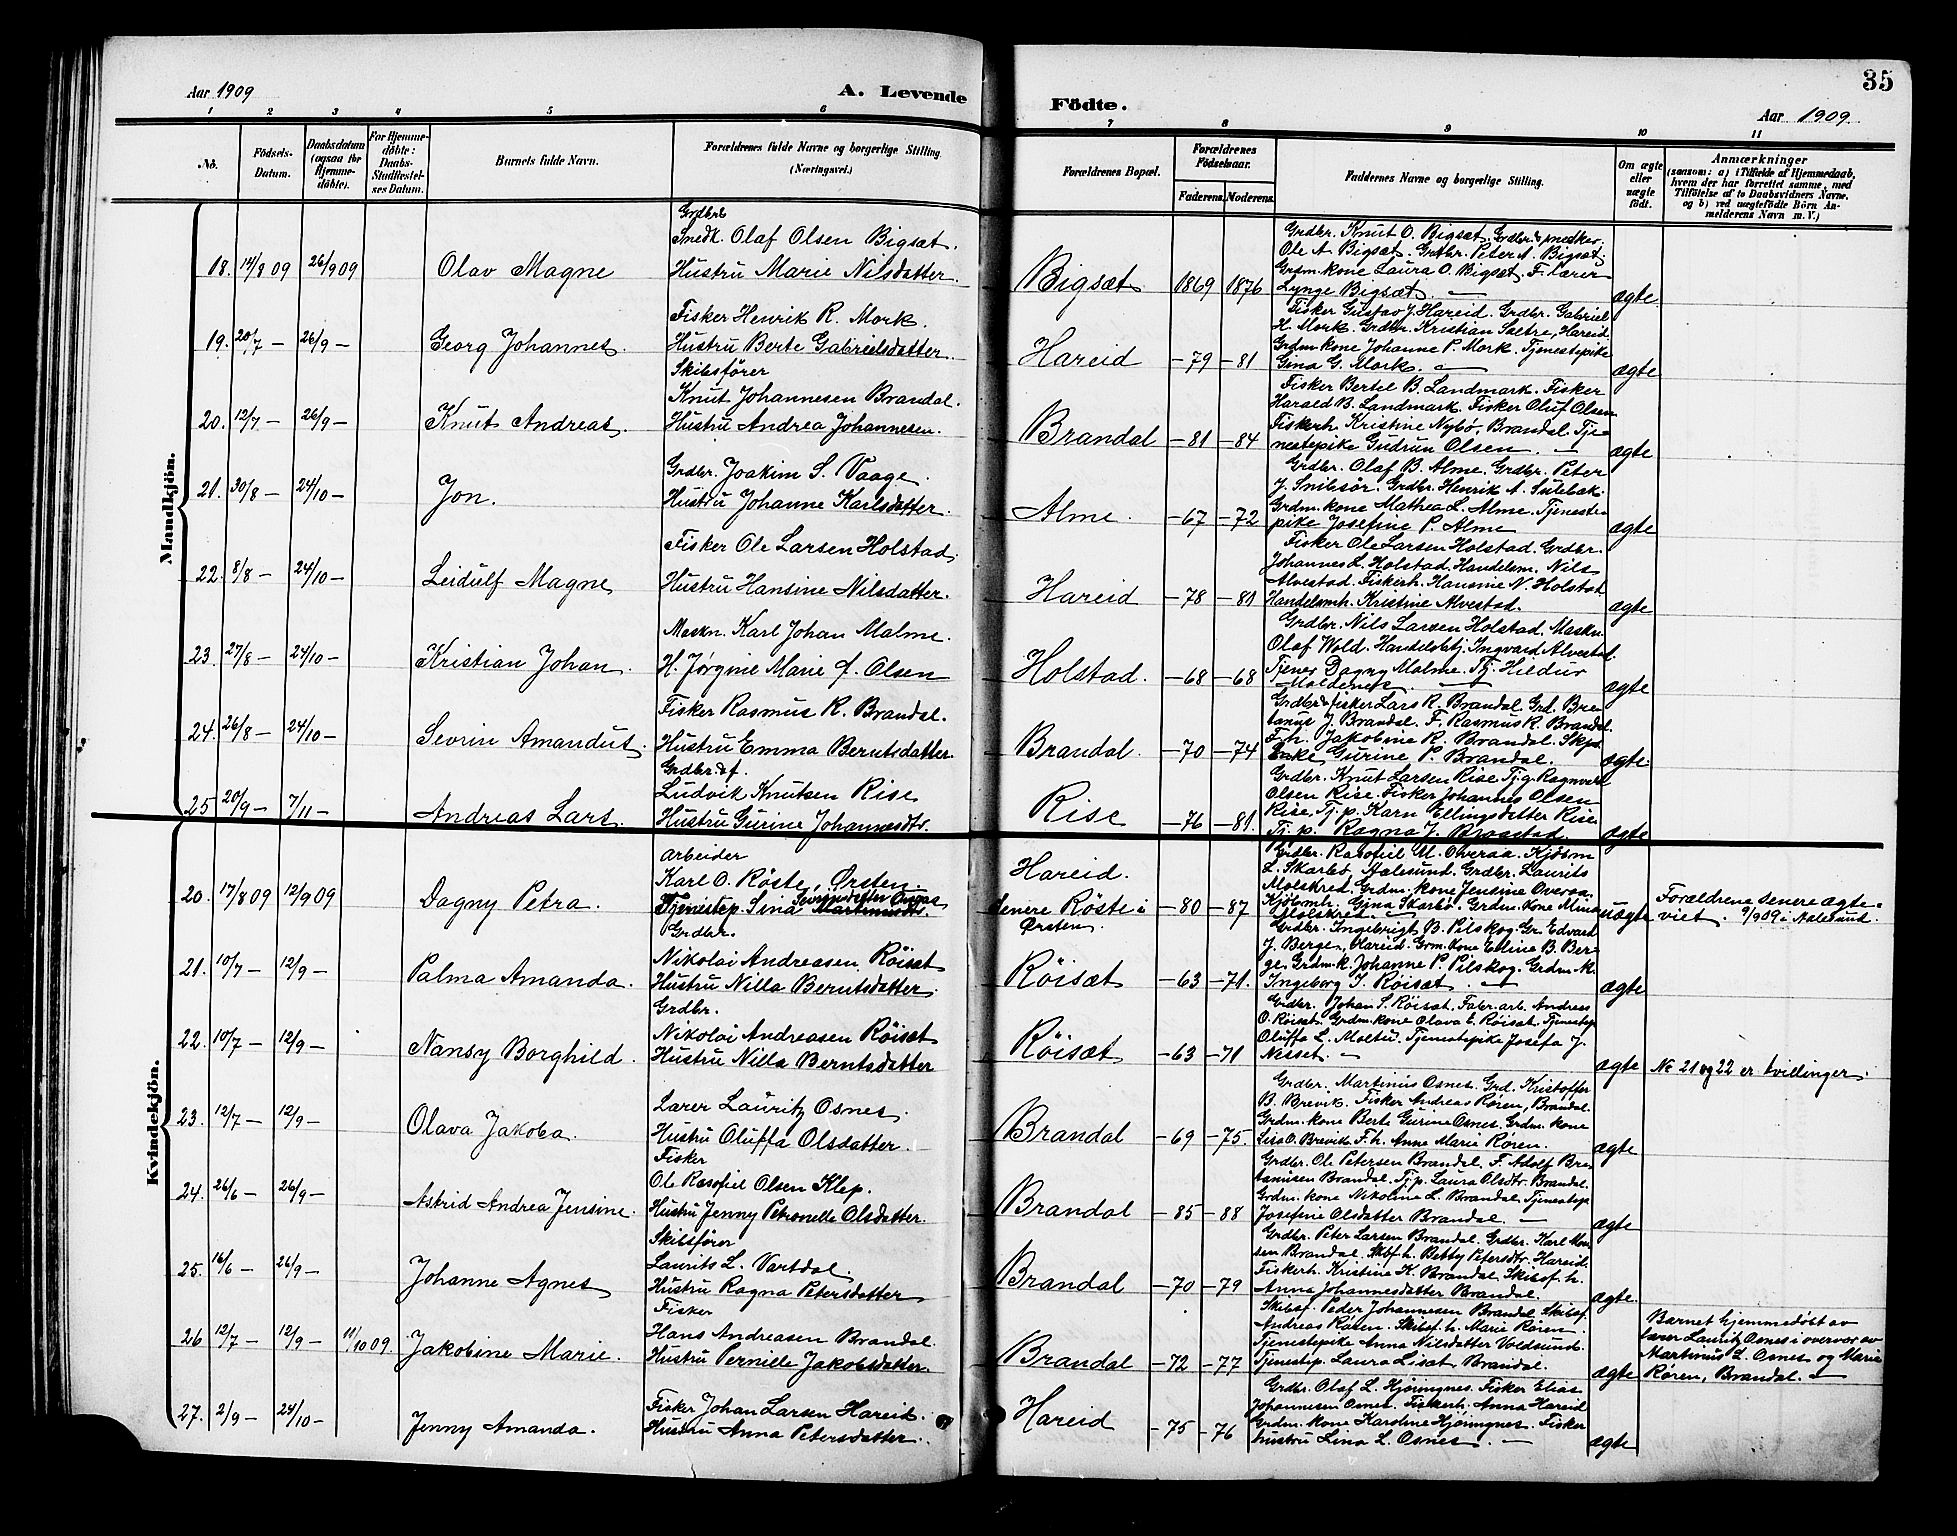 35
Aar 1909
A. Levende
Födte.
Aar 1909.
1 2 3 4 5 6 7 8 9 10 11
No.
Födsels-
Datum.
Daabsdatum
(ogsaa for
Hjemme-
döbte).
For Hjemme-
döbte:
Daabs-
Stadfæstel-
ses Datum.
Barnets fulde Navn.
Forældrenes fulde Navne og borgerlige Stilling
(Næringsvei.)
Forældrenes Bopæl.
Forældrenes
Födselsaar.
Faderens. Moderens.
Faddernes Navne og borgerlige Stilling.
Om ægte
eller
uægte
födt.
Anmærkninger
(saasom: a) i Tilfælde af Hjemmedaab,
hvem der har forrettet samme, med
Tilföielse af to Daabsvidners Navne,
og b) ved uægtefödte Börn An-
melderens Navn m. V.)
Mandkjön.
18. 14/8 09 26/9 09 Olav Magne
Grdbr &
Snedk. Olaf Olsen Bigsæt.
Hustru Marie Nilsdatter.
Bigsæt 1869 1876
Grdbr. Knut O. Bigsæt. Grdbr & snedker
Ole A. Bigsæt. Grdbr. Peter A. Bigsæt.
Grdm.kone Laura O. Bigsæt. F. lærer
Lynge Bigsæt. —
ægte
19. 20/7 — 26/9 — Georg Johannes.
Fisker Henrik R. Mork.
Hustru Berte Gabrielsdatter.
Hareid — 79 — 81
Fisker Gustav J. Hareid. Grdbr. Gabriel
H. Mork. Grdbr. Kristian Sætre, Hareid
Grdm.kone Johanne P. Mork. Tjenestepike
Gina G. Mork. —
ægte
20. 12/7 — 26/9 — Knut Andreas.
Skibsfører
Knut Johannesen Brandal.
Hustru Andrea Johannesen.
Brandal — 81 — 84
Fisker Bertel B. Landmark. Fisker
Harald B. Landmark. Fisker Oluf Olsen
Fiskerh. Kristine Nybø, Brandal. Tje-
nestepike Gudrun Olsen. —
ægte
21. 30/8 — 24/10 — Jon.
Grdbr. Joakim S. Vaage.
Hustru Johanne Karlsdatter.
Alme. — 67 — 72
Grdbr. Olaf B. Alme. Grdbr. Peter
J. Snibsør. Grdbr. Henrik A. Sulebak.
Grdm.kone Mathea L. Alme. Tjeneste-
pike Josefine P. Alme
ægte
22. 8/8 — 24/10 — Leidulf Magne
Fisker Ole Larsen Holstad.
Hustru Hansine Nilsdatter.
Hareid — 78 — 81
Fisker Ole Larsen Holstad. Grdbr.
Johannes L. Holstad. Handelsm. Nils
Alvestad. Fiskerh. Hansine N. Holstad
Handelsmh. Kristine Alvestad.
ægte
23. 27/8 — 24/10 — Kristian Johan.
Maskn. Karl Johan Malme.
H. Jørgine Marie f. Olsen
Holstad. — 68 — 68
Grdbr. Nils Larsen Holstad. Maskn.
Olaf Wold. Handelsbtj. Ingvard Alvestad.
Tjenes. Dagny Malme. Tj. Hildur
Moldenes. —
ægte
24. 26/8 — 24/10 — Sevrin Amandus.
Fisker Rasmus R. Brandal.
Hustru Emma Berntsdatter.
Brandal. — 70 — 74
Grdbr & fisker Lars R. Brandal. Grd. Bre-
tanus J. Brandal. F. Rasmus R. Brandal.
F.h. Jakobine R. Brandal. Skps
Enke Gurine P. Brandal.
ægte
25 20/9 — 7/11 — Andreas Lars.
Grdbr. & f.
Ludvik Knutsen Rise
Hustru Gurine Johannesdtr.
Rise — 76 — 81.
Grdbr. Knut Larsen Rise. Tj.g. Ragnvald
Olsen Rise. Fisker Johannes Olsen
Rise. Tj.p. Karn Ellingsdatter Rise
Tj.p. Ragna J. Brastad.
ægte
Kvindekjön.
20. 17/8 09 12/9 09 Dagny Petra.
Arbeider
Karl O. Röste, Ørsten.
Tjenestep. Sina
Hareid.
senere Röste i
Ørsten. — 80 — 87
Grdbr. Rasofiel M. Overaa. Kjöbm
L. Skarbö, Aalesund. Grdbr. Laurits
Molskred. Grdm.kone Jensine Overaa.
Kjöbmh. Gina Skarbö. Grdm.kone Mina
Molskred. —
uægte
Forældrene senere ægte-
viet. 9/9 09 i Aalesund.
21. 10/7 — 12/9 — Palma Amanda.
Grdbr.
Nikolai Andreasen Röisæt
Hustru Nilla Berntsdatter.
Röisæt — 63 — 71.
Grdbr. Ingebrigt B. Pilskog. Gr. Edvard
J. Berge, Hareid. Grm.kone Elline B. Ber-
ge. Grdm.k. Johanne P. Pilskog. Grdm.k.
Ingeborg I. Röisæt. —
ægte
22. 10/7 — 12/9 — Nansy Borghild.
Grdbr.
Nikolai Andreasen Röisæt
Hustru Nilla Berntsdatter
Röisæt — 63 — 71
Grdbr. Johan S. Röisæt. Fabr.arb. Andreas
O. Röisæt. Grdm.kone Olava E. Röisæt. Tjenestep
Oluffa L. Moltu. Tjenestepike Josefa J.
Nesset. —
ægte
No 21 og 22 er tvillinger.
23. 12/7 — 12/9 — Olava Jakoba.
Lærer Lauritz Osnes.
Hustru Oluffa Olsdatter.
Brandal — 69 — 75.
Grdbr. Martinus Osnes. Grd. Kristoffer
B. Brevik. Fisker Andreas Røren, Brandal.
Grdm.kone Berte Gurine Osnes. Grdm.kone
Lisa O. Brevik. F.h. Anne Marie Røren.
ægte
24. 26/6 — 26/9 — Astrid Andrea Jensine.
Fisker
Ole Rasofiel Olsen Klep.
Hustru Jenny Petronelle Olsdatter.
Brandal — 85 — 88
Grdbr. Ole Petersen Brandal. F. Adolf Bre-
tanusen Brandal. Tj.p. Laura Olsdtr. Brandal.
Grdm.kone Nikoline L. Brandal. Tjenestep
Josefine Olsdatter Brandal. —
ægte
25. 16/6 — 26/9 — Johanne Agnes
Skibsfører
Laurits L. Vartdal.
Hustru Ragna Petersdatter
Brandal — 70 — 79
Grdbr. Peter Larsen Brandal. Grdbr. Karl Han-
sen Brandal. Skbf.h. Betty Petersdtr. Hareid.
Fiskerh. Kristine K. Brandal. Skibsf.h.
Anna Johannesdatter Brandal.
ægte.
26 12/7 — 12/9 — 11/10 09 Jakobine Marie.
Fisker
Hans Andreasen Brandal.
Hustru Pernille Jakobsdatter
Brandal — 72 — 77
Skibsf. Peder Johannesen Brandal. Skibsf.
Andreas Røren. Skibsf.h. Marie Røren.
Tjenestepike Anna Nilsdatter Voldsund.
Tjenestep. Laura Liset, Brandal.
ægte
Barnet hjemmedöbt av
lærer Lauritz Osnes i overvær av
Martinus L. Osnes og Marie
Røren, Brandal. —
27. 2/9 — 24/10 — Jenny Amanda.
Fisker Johan Larsen Hareid.
Hustru Anna Petersdatter.
Hareid — 75 — 76
Grdbr. Olaf L. Hjörungnes. Fisker Elias
Johannesen Osnes. Fiskerh. Anna Hareid
Grdm.kone Karoline Hjörungnes. Fisker
hustru Lina L. Osnes. —
ægte